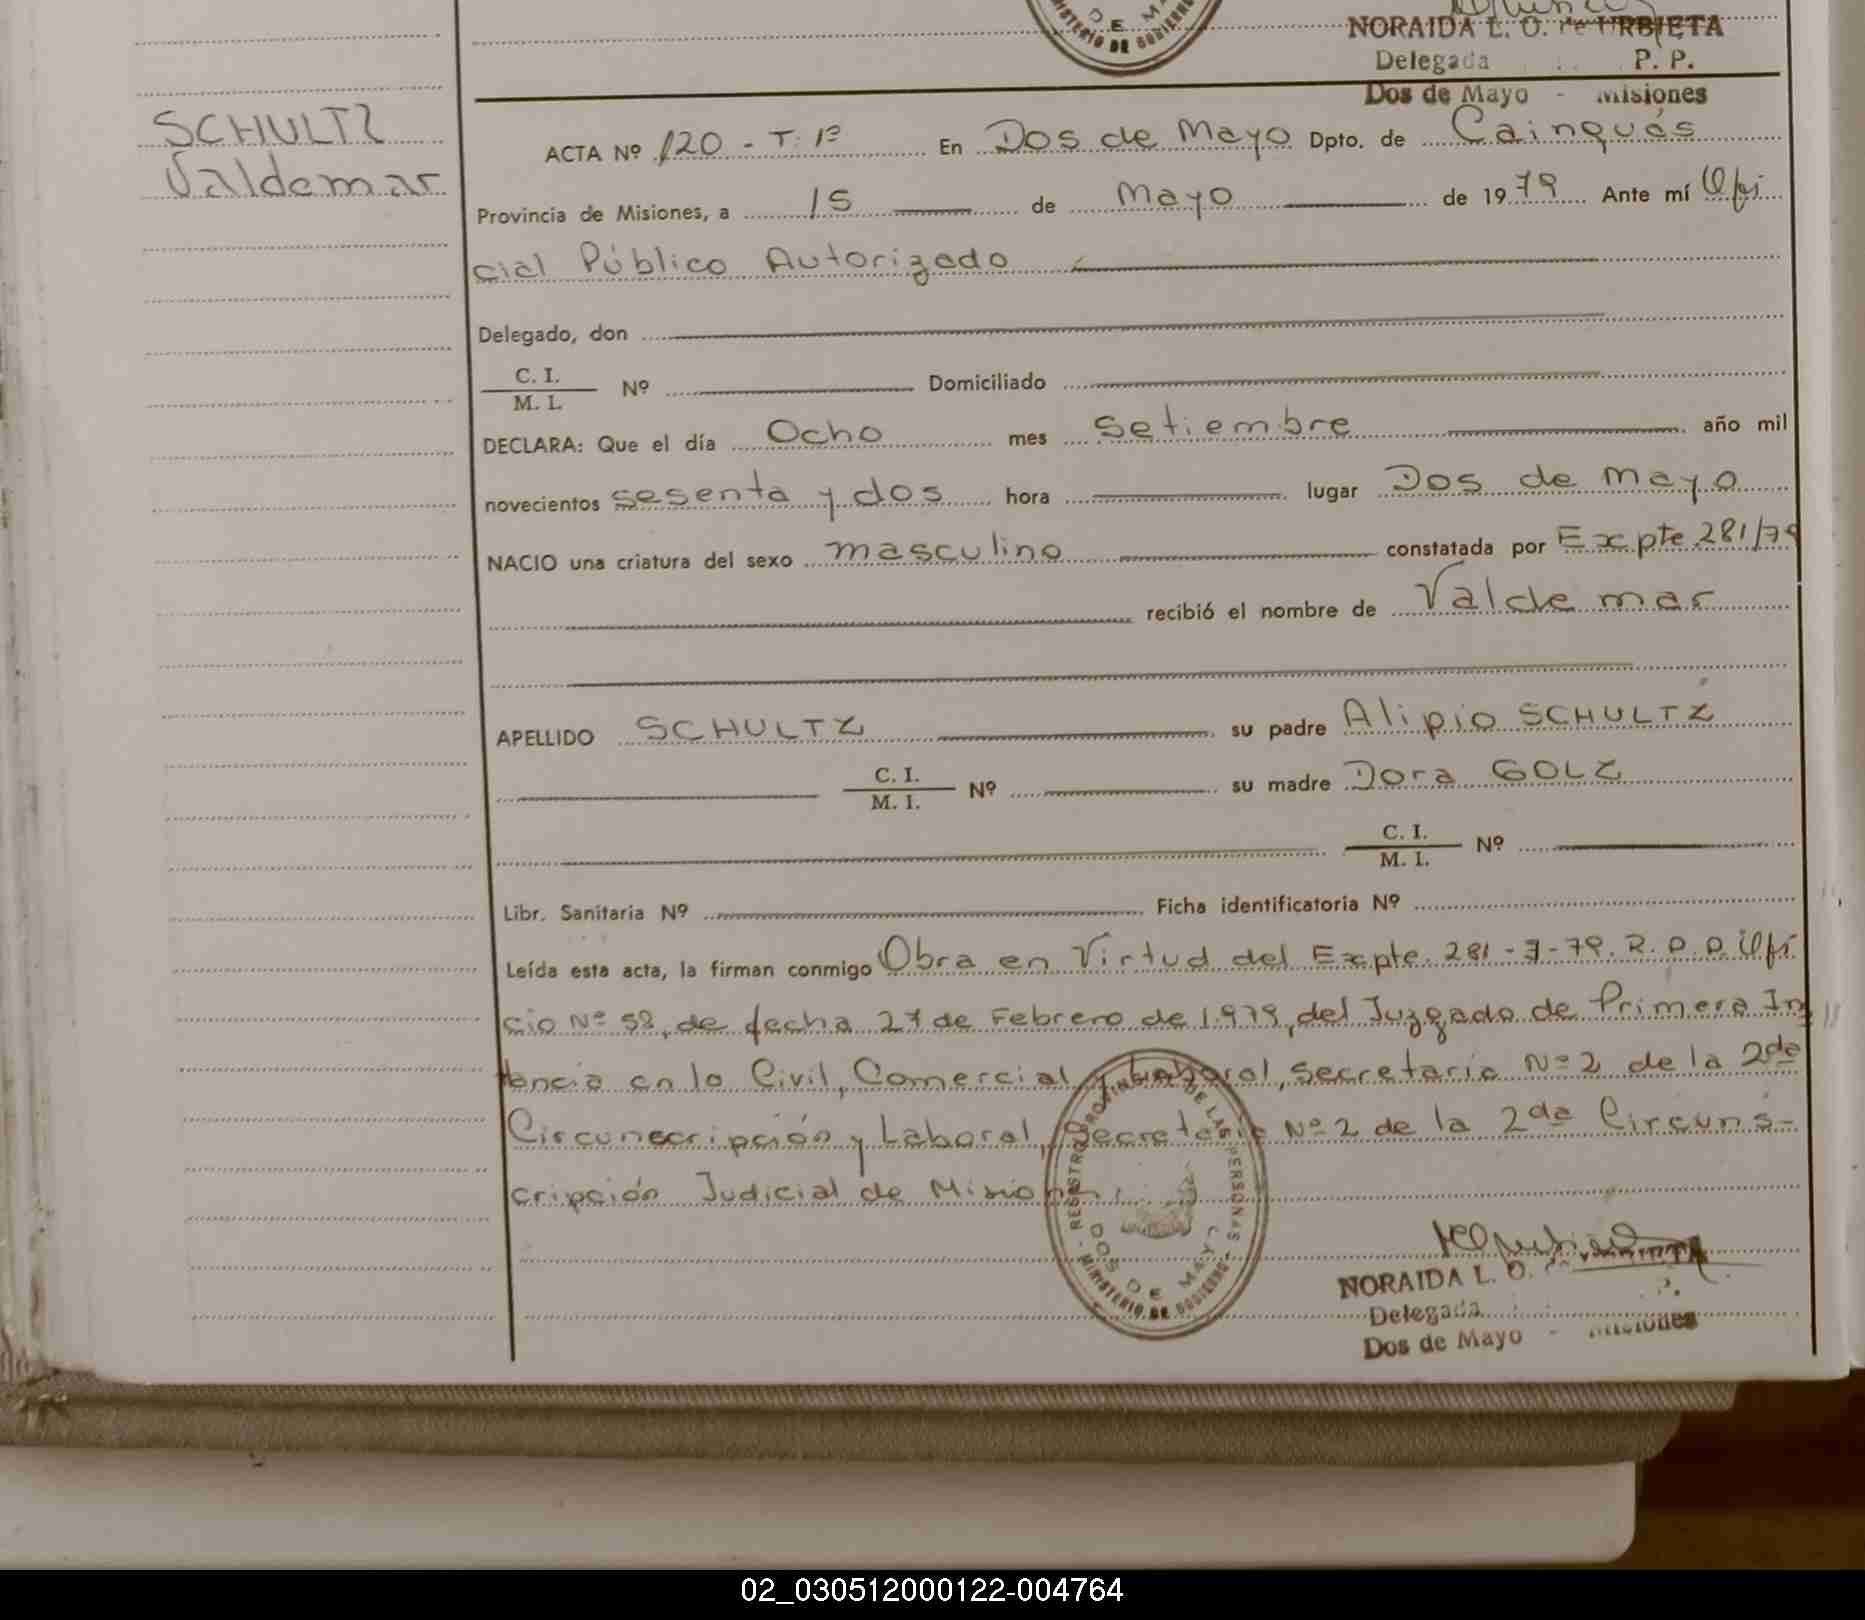 DE MA
MINISTERIO DE GOBIERNO
NORAIDA L. O. de URBIETA
Delegada P. P.
Dos de Mayo - Misiones
SCHULTZ
Valdemar
ACTA Nº 120 - T: 1º En Dos de Mayo Dpto. de Cainguás
Provincia de Misiones, a 15 de Mayo de 1979 Ante mí Ofi
cial Público Autorizado
Delegado, don
C. I.
M. I. Nº Domiciliado
DECLARA: Que el día Ocho mes Setiembre año mil
novecientos sesenta y dos hora lugar Dos de Mayo
NACIO una criatura del sexo masculino constatada por Expte 281/79
recibió el nombre de Valdemar
APELLIDO SCHULTZ su padre Alipio SCHULTZ
C. I.
M. I. Nº su madre Dora GOLZ
C. I.
M. I. Nº
Libr. Sanitaria Nº Ficha identificatoria Nº
Leída esta acta, la firman conmigo Obra en Virtud del Expte. 281-J-79. R.P.P. Ofi
cio Nº 58, de fecha 27 de Febrero de 1.979, del Juzgado de Primera Ins
tancia en lo Civil, Comercial y Laboral, Secretaría Nº 2 de la 2da
Circunscripción y Laboral, Secretaría Nº 2 de la 2da Circuns-
cripción Judicial de Misiones.
REGISTRO PROVINCIAL DE LAS PERSONAS
DOS DE MAYO
MINISTERIO DE GOBIERNO
NORAIDA L. O.
Delegada P.
Dos de Mayo - Misiones
02_030512000122-004764